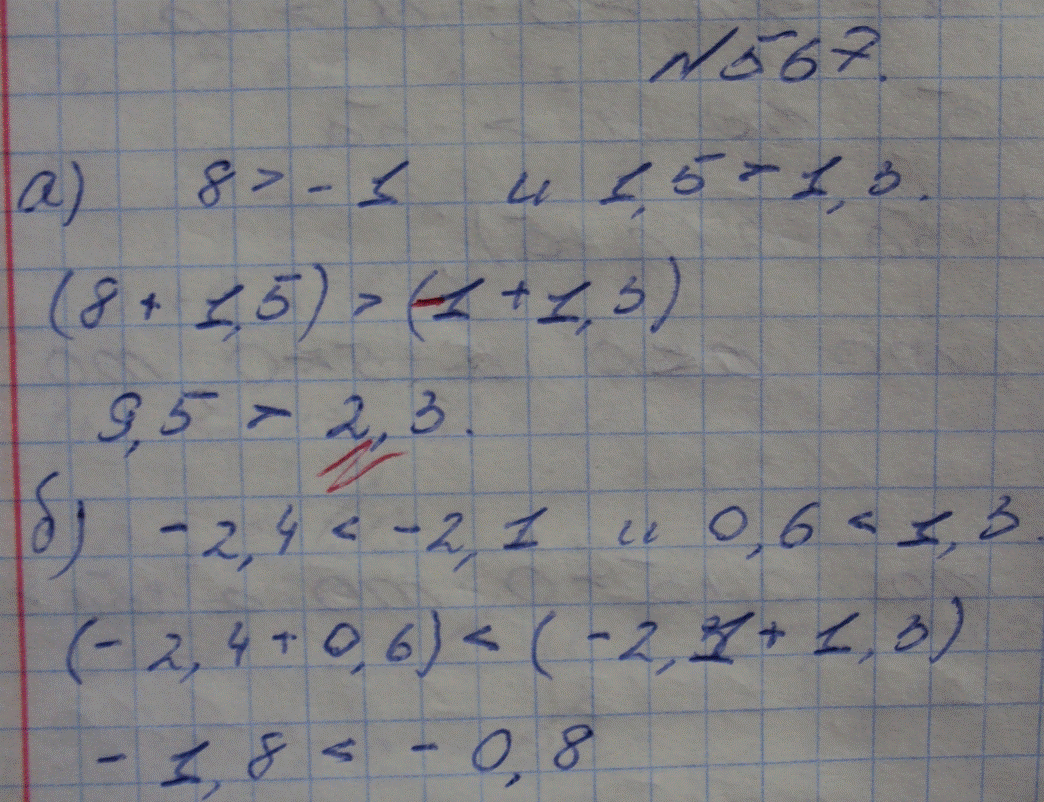 №567.
а) 8 > -1 и 1,5 > 1,3.
(8 + 1,5) > (-1 + 1,3)
9,5 > 2,3.
б) -2,4 < -2,1 и 0,6 < 1,3.
(-2,4 + 0,6) < (-2,1 + 1,3)
-1,8 < -0,8